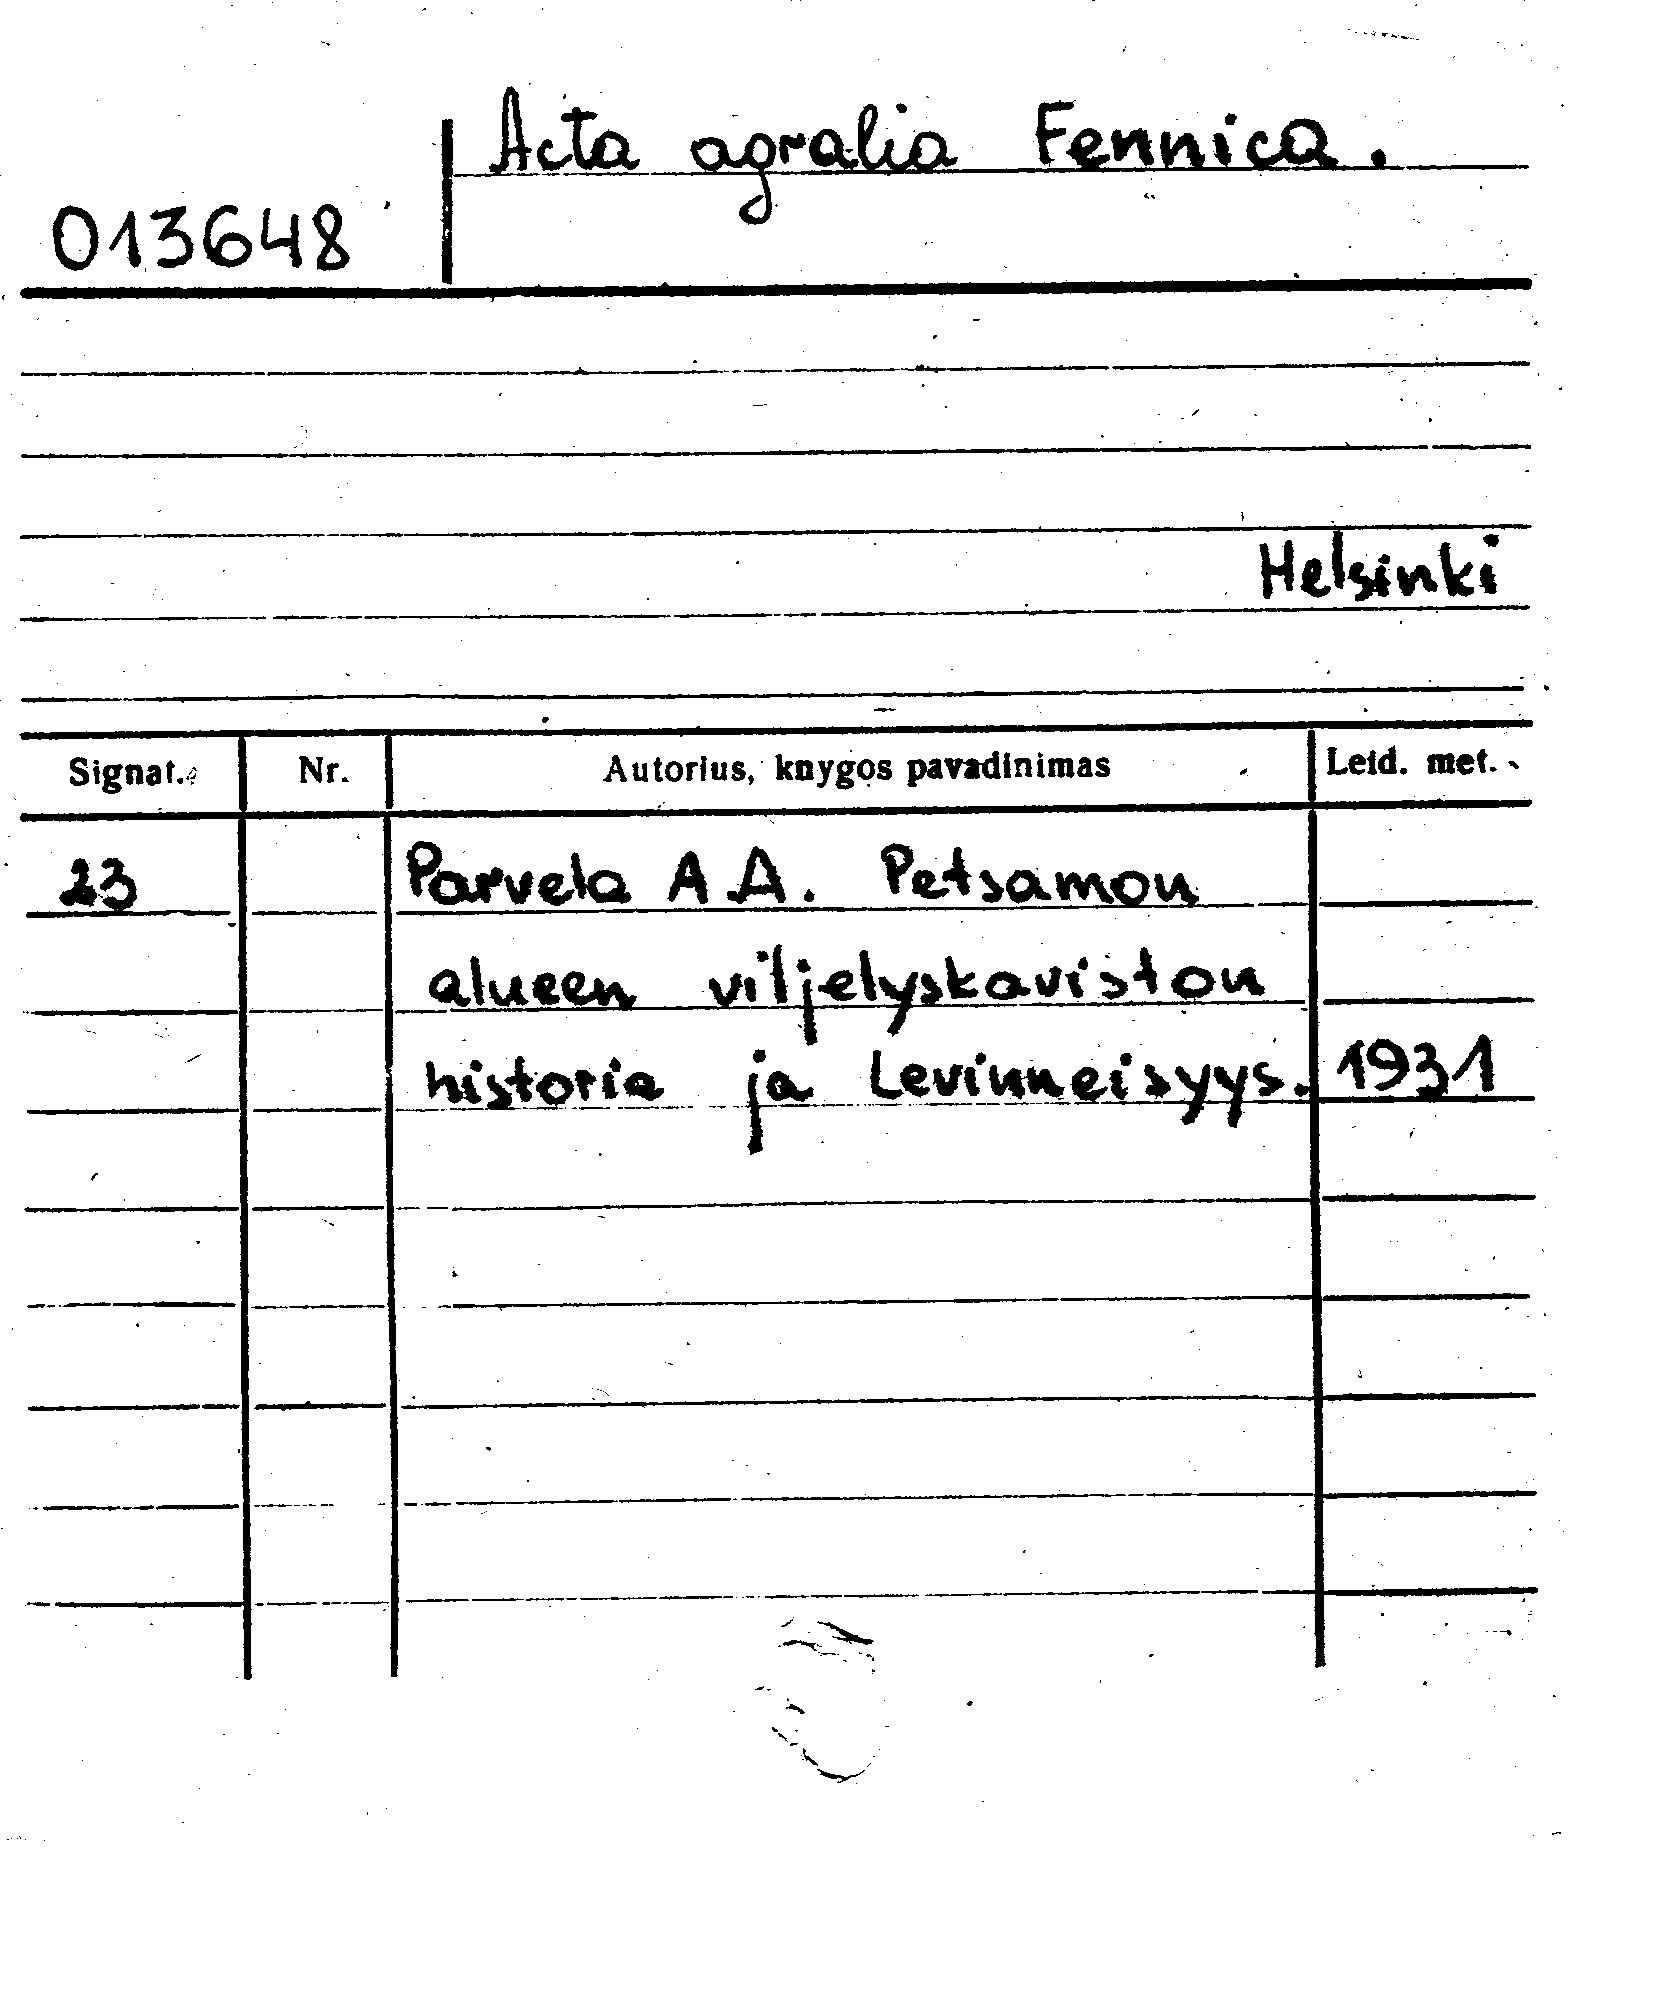 Acta agralia Fennica.
013648
Helsinki
Signat. Nr. Autorius, knygos pavadinimas Leid. met.
23 Parvela A A. Petsamon
alueen viljelyskaviston
historia ja Levinneisyys. 1931